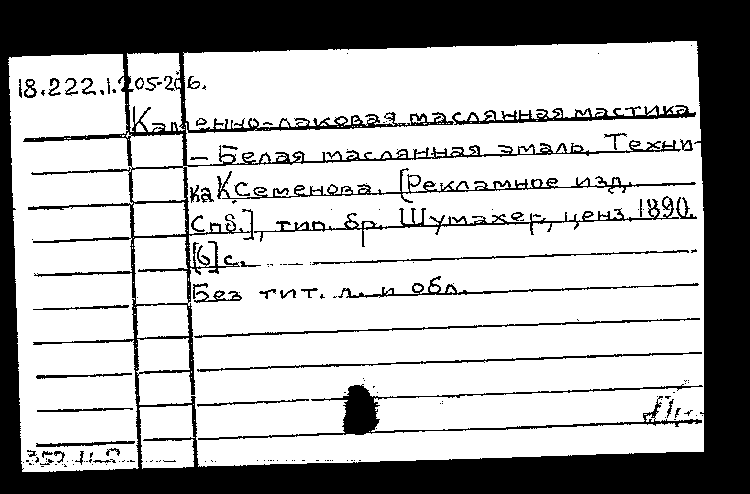 18.222.1.205-206.
Каменно-лаковая маслянная мастика
- Белая маслянная эмаль. Техни-
ка К.Семенова. [Рекламное изд.
Спб.], тип. бр. Шумахер, ценз. 1890.
[6] с.
Без тит. л. и обл.